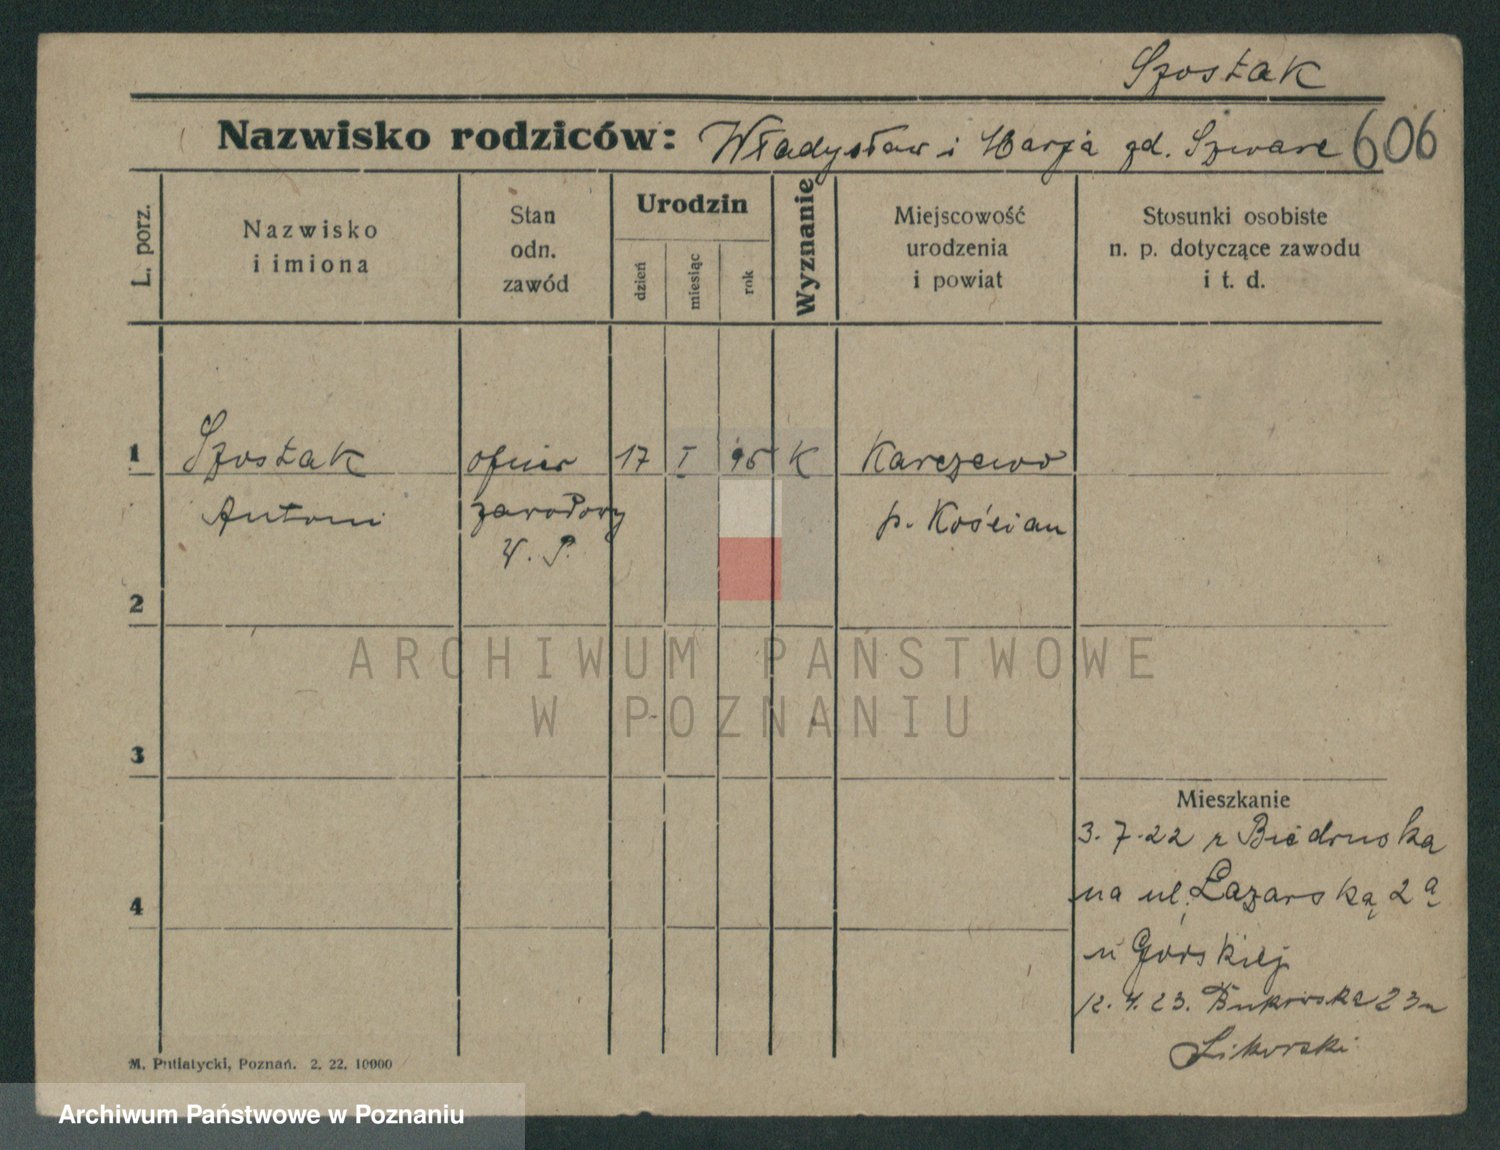 Szostak
Nazwisko rodziców: Władysław i Marja zd. Szware 606
L. porz.
Nazwisko
i imiona
Stan
odn.
zawód
Urodzin
dzień
miesiąc
rok
Wyznanie
Miejscowość
urodzenia
i powiat
Stosunki osobiste
n. p. dotyczące zawodu
i t. d.
1 Szostak oficer 17 I 95 K Karczewo
Antoni zawodowy p. Kościan
W. P.
2
ARCHIWUM PAŃSTWOWE
W POZNANIU
3
Mieszkanie
3.7.22 z Biedruska
na ul. Łazarską 2a
u Górskiej
4
12.4.23. Bukowska 23 u
Sikorski
M. Putiatycki, Poznań. 2. 22. 10000
Archiwum Państwowe w Poznaniu